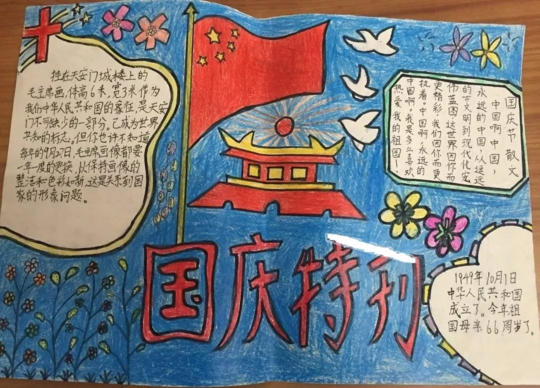 挂在天安门城楼上的
毛主席画,体高6米,宽5米,作为
我们中华人民共和国的象征,是天安
门不可缺少的一部分,已成为世界
共知的标志。但你也许不知道,
每年的9月27日,毛主席画像都要
一年一度的更换,以保持画像的
整洁和色彩如新,这是关系到国
家的形象问题。
国庆节散文
中国啊中国,
永远的中国!从远远
的古文明到现代化宏
伟蓝图这世界因你而
更精彩,我们因你而更
执着。中国啊,永远的
中国啊!我是多么喜欢
热爱我的祖国!
国庆特刊
1949年10月1日
中华人民共和国
成立了。今年祖
国母亲66周岁了。